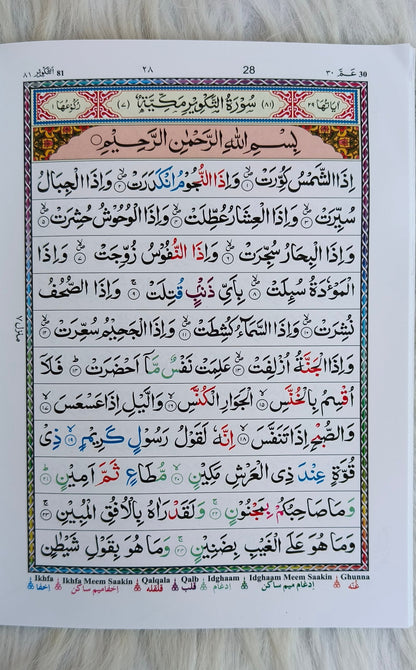 ٨١ التكوير 81 ٢٨ 28 ٣٠ عَمَّ 30
اٰيَاتُهَا ٢٩ (٨١) سُوْرَةُ التَّكْوِيْرِ مَكِّيَّةٌ (٧) رُكُوْعُهَا ١
بِسْمِ اللهِ الرَّحْمٰنِ الرَّحِيْمِ
اِذَا الشَّمْسُ كُوِّرَتْ ۙ ١ وَاِذَا النُّجُوْمُ انْكَدَرَتْ ۙ ٢ وَاِذَا الْجِبَالُ
سُيِّرَتْ ۙ ٣ وَاِذَا الْعِشَارُ عُطِّلَتْ ۙ ٤ وَاِذَا الْوُحُوْشُ حُشِرَتْ ۙ ٥
وَاِذَا الْبِحَارُ سُجِّرَتْ ۙ ٦ وَاِذَا النُّفُوْسُ زُوِّجَتْ ۙ ٧ وَاِذَا
الْمَوْءٗدَةُ سُىِٕلَتْ ۙ ٨ بِاَيِّ ذَنْۢبٍ قُتِلَتْ ۚ ٩ وَاِذَا الصُّحُفُ
نُشِرَتْ ۙ ١٠ وَاِذَا السَّمَآءُ كُشِطَتْ ۙ ١١ وَاِذَا الْجَحِيْمُ سُعِّرَتْ ۙ ١٢
وَاِذَا الْجَنَّةُ اُزْلِفَتْ ۙ ١٣ عَلِمَتْ نَفْسٌ مَّاۤ اَحْضَرَتْ ؕ ١٤ فَلَاۤ
اُقْسِمُ بِالْخُنَّسِ ۙ ١٥ الْجَوَارِ الْكُنَّسِ ۙ ١٦ وَالَّيْلِ اِذَا عَسْعَسَ ۙ ١٧
وَالصُّبْحِ اِذَا تَنَفَّسَ ۙ ١٨ اِنَّهٗ لَقَوْلُ رَسُوْلٍ كَرِيْمٍ ۙ ١٩ ذِيْ
قُوَّةٍ عِنْدَ ذِي الْعَرْشِ مَكِيْنٍ ۙ ٢٠ مُّطَاعٍ ثَمَّ اَمِيْنٍ ؕ ٢١
وَمَا صَاحِبُكُمْ بِمَجْنُوْنٍ ۚ ٢٢ وَلَقَدْ رَاٰهُ بِالْاُفُقِ الْمُبِيْنِ ۚ ٢٣
وَمَا هُوَ عَلَى الْغَيْبِ بِضَنِيْنٍ ۚ ٢٤ وَمَا هُوَ بِقَوْلِ شَيْطٰنٍ
Ikhfa Ikhfa Meem Saakin Qalqala Qalb Idghaam Idghaam Meem Saakin Ghunna
اِخفا اِخفامیم ساکن قلقلہ قلب اِدغام اِدغام میم ساکن غنہ